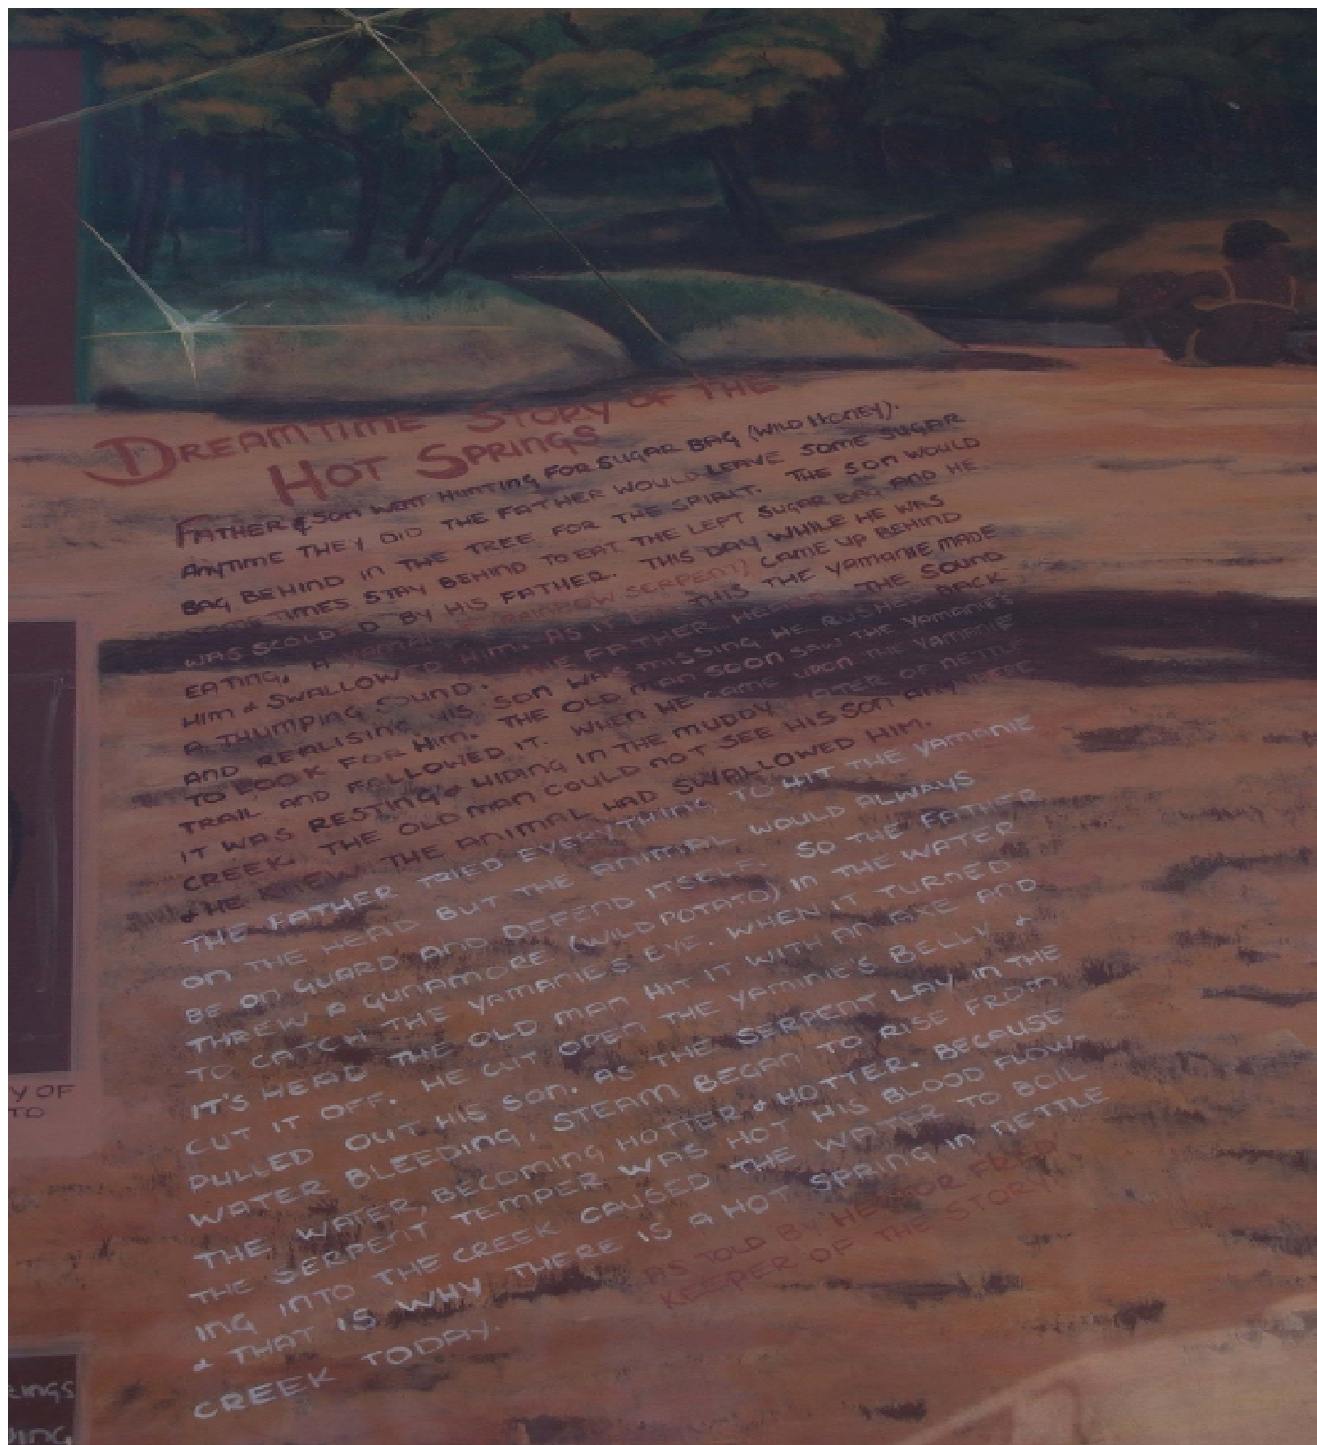 DREAMTIME STORY OF THE
HOT SPRINGS
FATHER & SON WENT HUNTING FOR SUGAR BAG (WILD HONEY).
ANYTIME THEY DID THE FATHER WOULD LEAVE SOME SUGAR
BAG BEHIND IN THE TREE FOR THE SPIRIT. THE SON WOULD
SOME TIMES STAY BEHIND TO EAT THE LEFT SUGAR BAG AND HE
WAS SCOLDED BY HIS FATHER. THIS DAY WHILE HE WAS
EATING, A YAMANIE (RAINBOW SERPENT) CAME UP BEHIND
HIM & SWALLOWED HIM. AS IT DID THIS THE YAMANIE MADE
A THUMPING SOUND. THE FATHER HEARD THE SOUND
AND REALISING HIS SON WAS MISSING HE RUSHED BACK
TO LOOK FOR HIM. THE OLD MAN SOON SAW THE YAMANIE'S
TRAIL AND FOLLOWED IT. WHEN HE CAME UPON THE YAMANIE
IT WAS RESTING & HIDING IN THE MUDDY WATER OF NETTLE
CREEK. THE OLD MAN COULD NOT SEE HIS SON ANYWHERE
& HE KNEW THE ANIMAL HAD SWALLOWED HIM.
THE FATHER TRIED EVERYTHING TO HIT THE YAMANIE
ON THE HEAD BUT THE ANIMAL WOULD ALWAYS
BE ON GUARD AND DEFEND ITSELF. SO THE FATHER
THREW A GUNAMORE (WILD POTATO) IN THE WATER
TO CATCH THE YAMANIE'S EYE. WHEN IT TURNED
IT'S HEAD THE OLD MAN HIT IT WITH AN AXE AND
CUT IT OFF. HE CUT OPEN THE YAMINIE'S BELLY &
PULLED OUT HIS SON. AS THE SERPENT LAY IN THE
WATER BLEEDING, STEAM BEGAN TO RISE FROM
THE WATER, BECOMING HOTTER & HOTTER. BECAUSE
THE SERPENT TEMPER WAS HOT HIS BLOOD FLOW-
ING INTO THE CREEK CAUSED THE WATER TO BOIL
& THAT IS WHY THERE IS A HOT SPRING IN NETTLE
CREEK TODAY.
AS TOLD BY HECTOR FRED
KEEPER OF THE STORY
Y OF
TO
RINGS